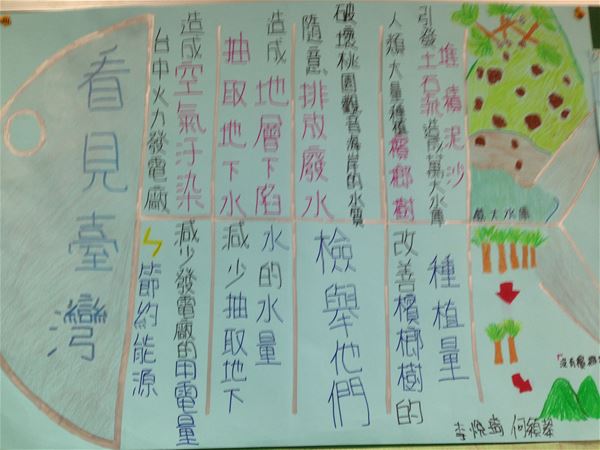 看見臺灣
台中火力發電廠
造成空氣汙染
抽取地下水
造成地層下陷
隨意排放廢水
破壞桃園觀音海岸的水質
人類大量種植檳榔樹
引發土石流造成萬大水庫
堆積泥沙
萬大水庫
節約能源
減少發電廠的用電量
減少抽取地下
水的水量
檢舉他們
改善檳榔樹的
種植量
沒有檳榔